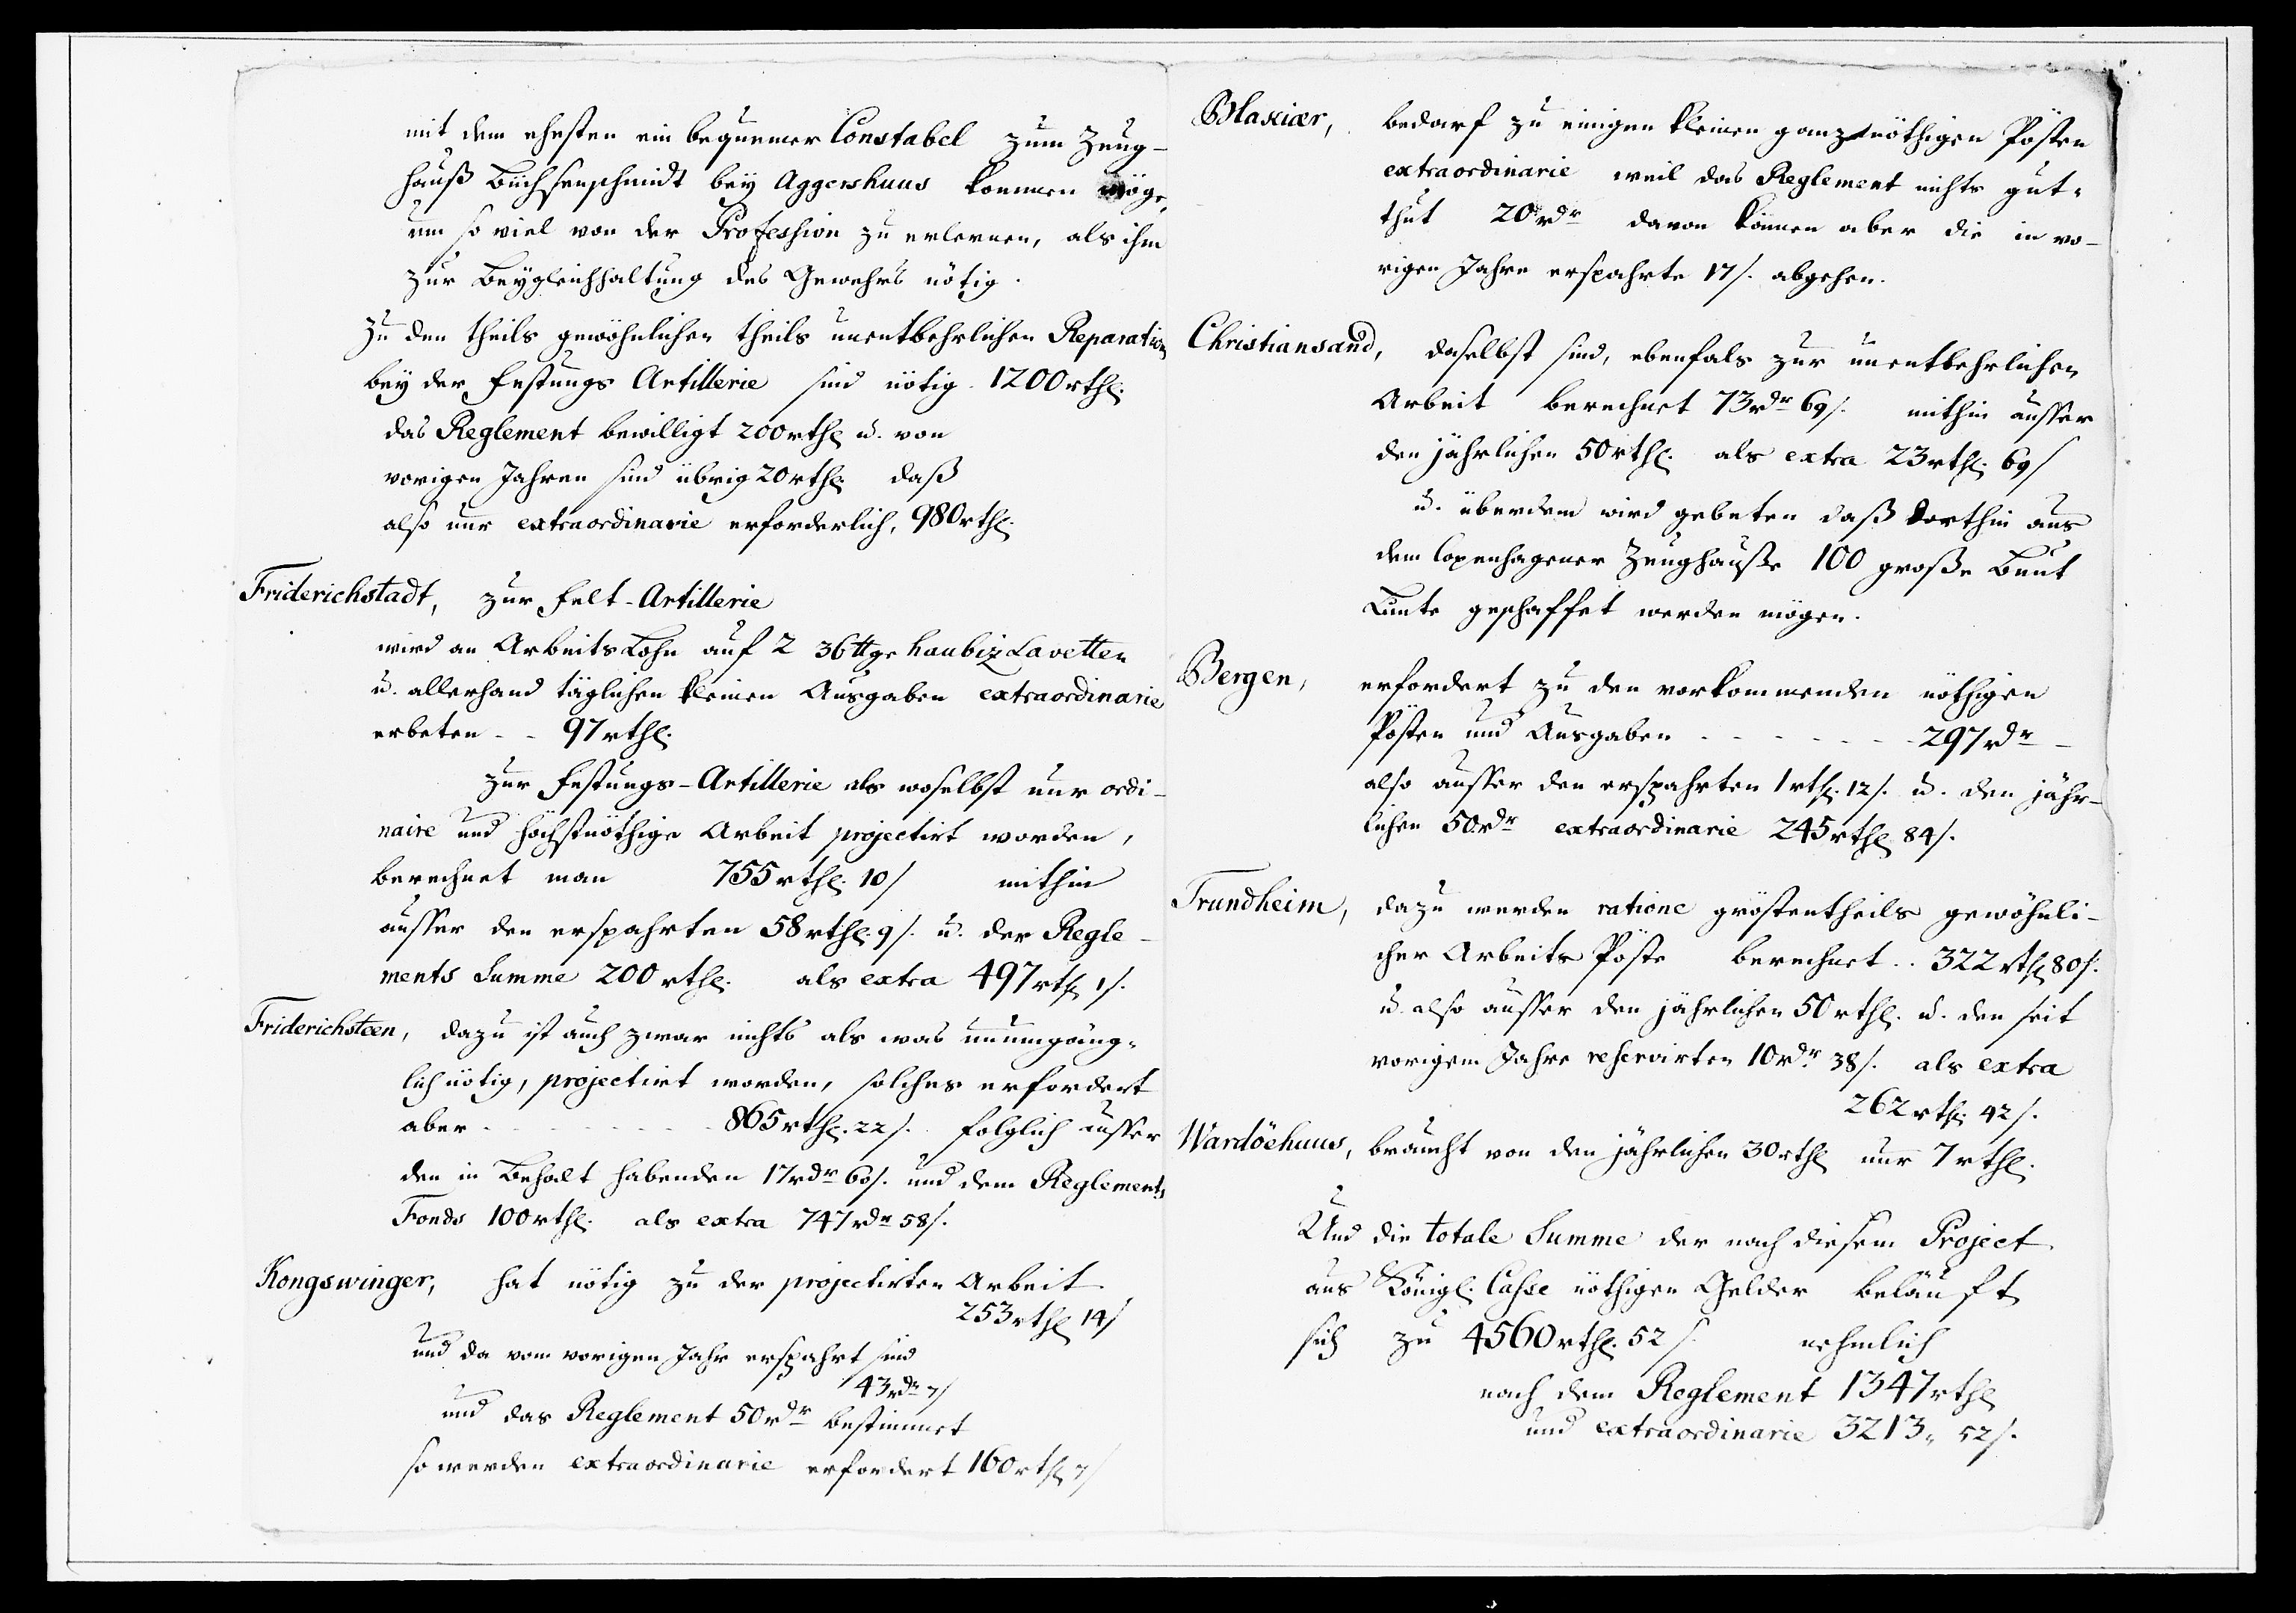 mit dem ehesten ein bequemer Constabel zum Zeug-
hauß Büchsenschmidt bey Aggershuus kommen möge,
um so viel von der Profession zu erlernen, als ihm
zur Beygleichhaltung des Gewehrs nötig.
Zu den theils gewöhnlichen theils unentbehrlichen Reparation
bey der Festungs Artillerie sind nötig 1200 rthl.
das Reglement bewilligt 200 rthl u. von
vorigen Jahren sind übrig 20 rthl. daß
also nur extraordinarie erforderlich, 980 rthl.
Friderichstadt, zur Felt-Artillerie
wird an Arbeits Lohn auf 2 36 ttge Haubiz Lavetten
u. allerhand täglichen kleinen Ausgaben extraordinarie
erbeten - - 97 rthl.
zur Festungs-Artillerie als woselbst nur ordi-
naire und höchstnöthige Arbeit projectirt worden,
berechnet man 755 rthl. 10 / mithin
ausser den erspahrten 58 rthl. 9 /. u. der Regle-
ments Summe 200 rthl. als extra 497 rthl 1 /.
Friderichsteen, dazu ist auch zwar nichts als was unumgäng-
lich nötig, projectirt worden, solches erfordert
aber - - - - - - - - 865 rthl. 22 /. folglich ausser
den in Behalt habenden 17 rdr 60 /. und dem Reglements
Fonds 100 rthl. als extra 747 rdr 58 /.
Kongswinger, hat nötig zu der projectirten Arbeit
253 rthl 14 /
und da vom vorigen Jahr erspahrt sind
43 rdr 7 /
und das Reglement 50 rdr bestimmet
so werden extraordinarie erfordert 160 rthl 7 /
Blaxiær, bedarf zu einigen kleinen ganz nöthigen Pösten
extraordinarie weil das Reglement nichts gut-
thut 20 rdr davon können aber die in vo-
rigen Jahre erspahrte 17 /. abgehen.
Christiansand, daselbst sind, ebenfals zur unentbehrlichen
Arbeit berechnet 73 rdr 69 /. mithin ausser
den jährlichen 50 rthl. als extra 23 rthl. 69 /
u. überdem wird gebeten daß dorthin aus
dem Copenhagener Zeughauße 100 große Bunt
Lunte geschaffet werden mögen.
Bergen, erfordert zu den vorkommenden nöthigen
Pösten und Ausgaben - - - - - - - 297 rdr -
also ausser den erspahrten 1 rthl. 12 /. u. den jähr-
lichen 50 rdr extraordinarie 245 rthl 84 /.
Trundheim, dazu werden ratione gröstentheils gewöhnli-
cher Arbeits Pöste berechnet .. 322 rthl 80 /.
u. also ausser den jährlichen 50 rthl. u. den seit
vorigem Jahre reservirten 10 rdr 38 /. als extra
262 rthl. 42 /.
Wardöehuus, braucht von den jährlichen 30 rthl nur 7 rthl.
Und die totale Summe der nach diesem Project
aus Königl. Casse nöthigen Gelder beläuft
sich zu 4560 rthl. 52 /. nehmlich
nach dem Reglement 1347 rthl
und extraordinarie 3213 " 52 /.